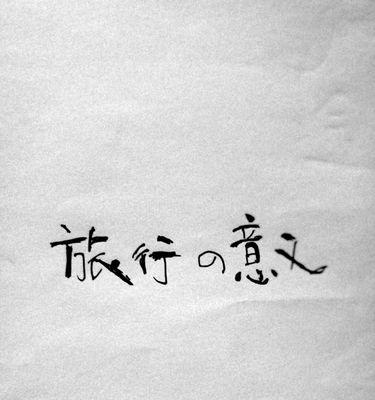 旅行の意义